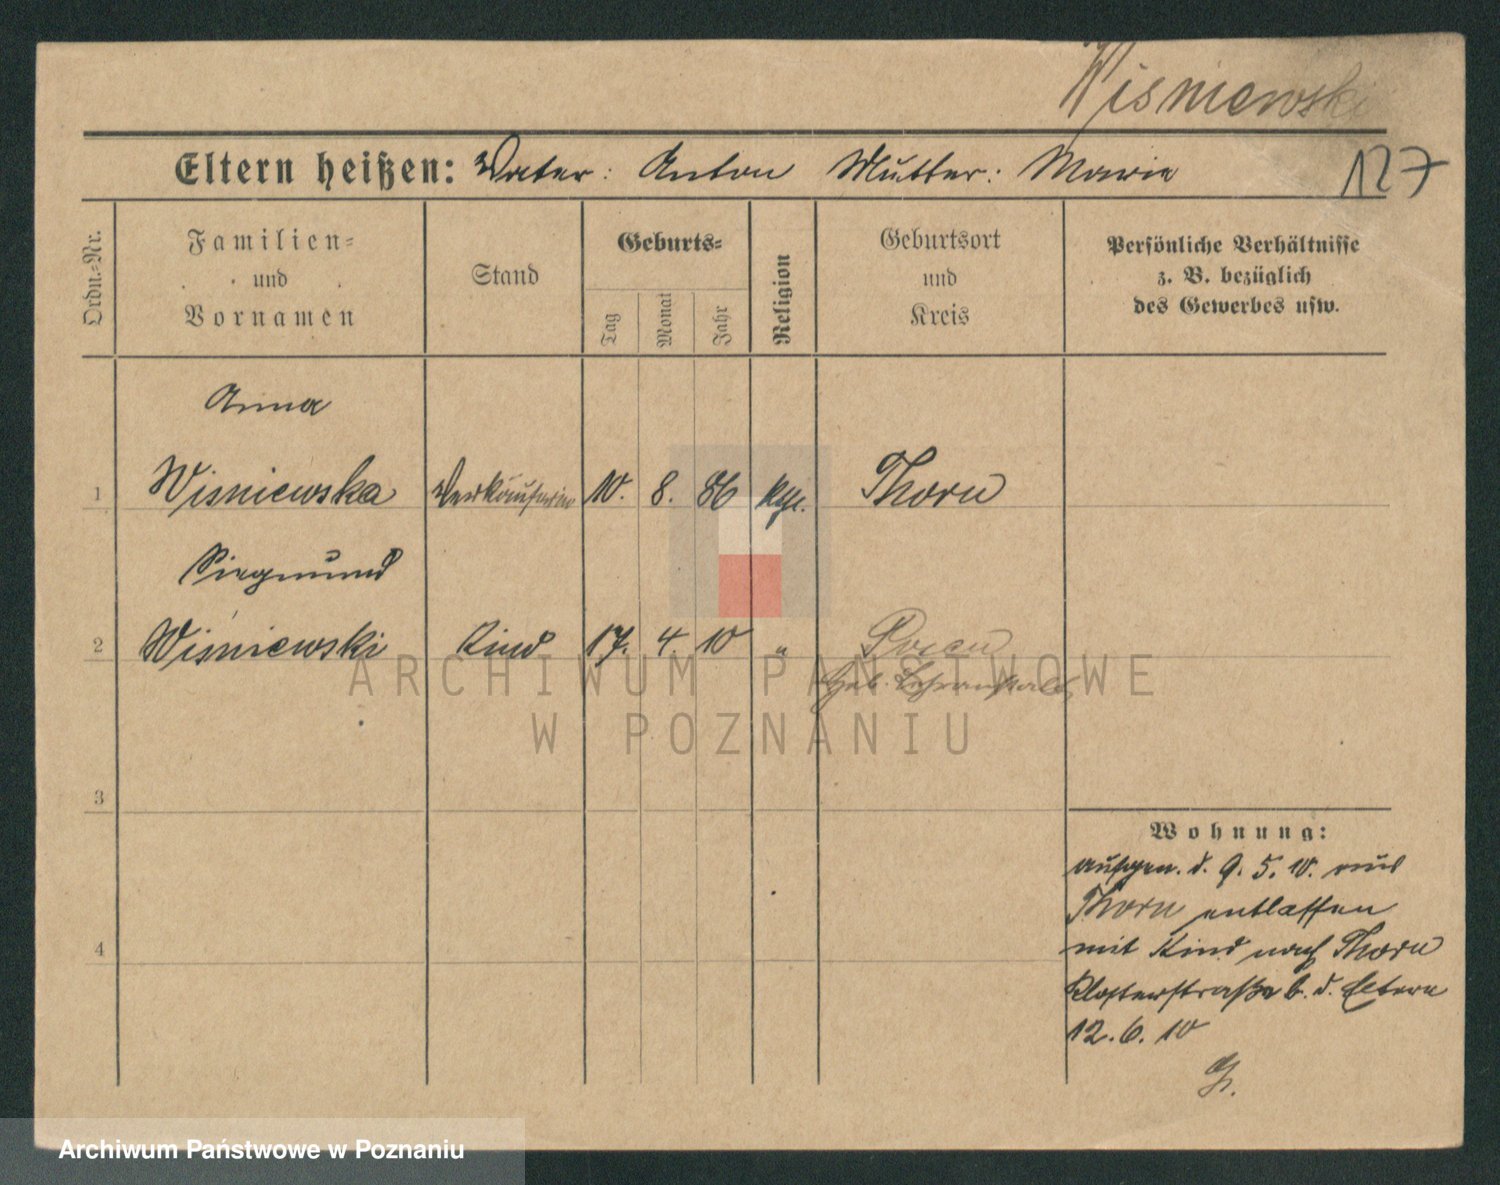 Wisniewski
127
Eltern heißen: Vater: Anton Mutter: Marie
Ordn.=Nr.
Familien=
und
Vornamen
Stand
Geburts=
Tag
Monat
Jahr
Religion
Geburtsort
und
Kreis
Persönliche Verhältnisse
z. B. bezüglich
des Gewerbes usw.
Anna
1 Wisniewska Verkäuferin 10. 8. 86 kth. Thorn
Siegmund
2 Wiśniewski Kind 17. 4. 10 " Posen
Heb. Lehranstalt
3
4
Wohnung:
aufgen. d. 9. 5. 10. aus
Thorn entlassen
mit Kind nach Thorn
Klosterstraße b. d. Eltern
12. 6. 10
ARCHIWUM PAŃSTWOWE
W POZNANIU
Archiwum Państwowe w Poznaniu